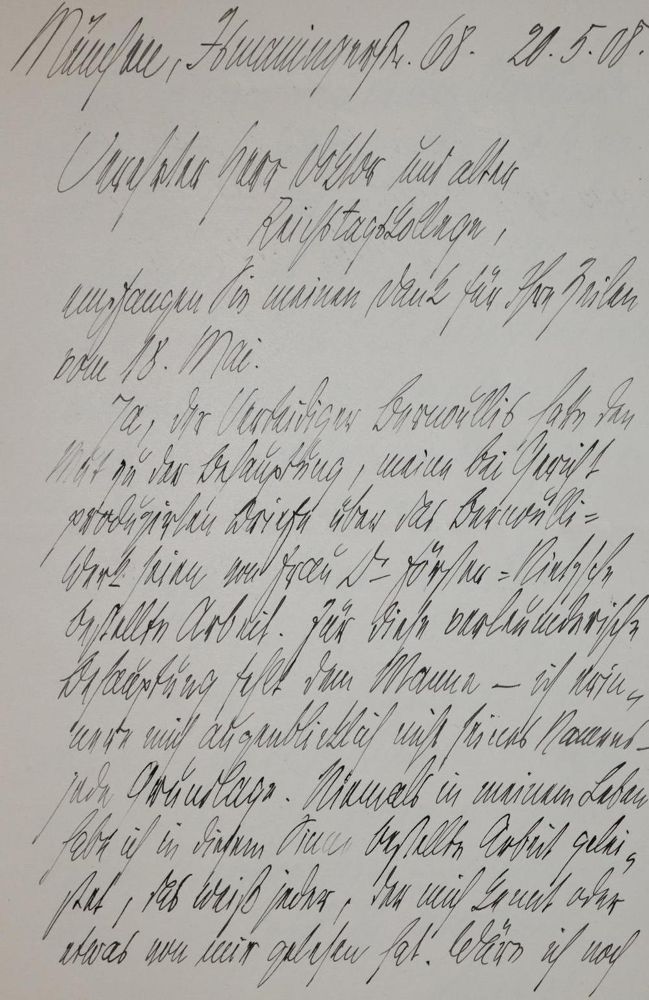 München, Ismaningerstr. 68. 20.5.08.
Verehrter Herr Doktor und alter
Reichstagskollege,
empfangen Sie meinen Dank für Ihre Zeilen
vom 18. Mai.
Ja, der Verteidiger Bernoullis hatte den
Mut zu der Behauptung, meine bei Gericht
produzirten Briefe über das Bernoulli=
Werk seien von Frau Dr Förster=Nietzsche
bestellte Arbeit. Für diese verleumderische
Behauptung fehlt dem Manne — ich erin„
nere mich augenblicklich nicht seines Namens —
jede Grundlage. Niemals in meinem Leben
habe ich in diesem Sinne bestellte Arbeit gelei„
stet, das weiß jeder, der mich kennt oder
etwas von mir gelesen hat. Wäre ich noch